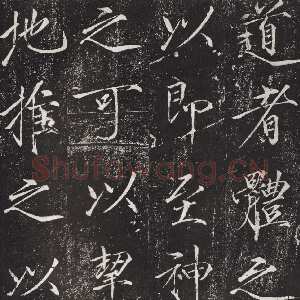 道者體之
以即至神
之可以挈
地推之以
Shufawang.CN